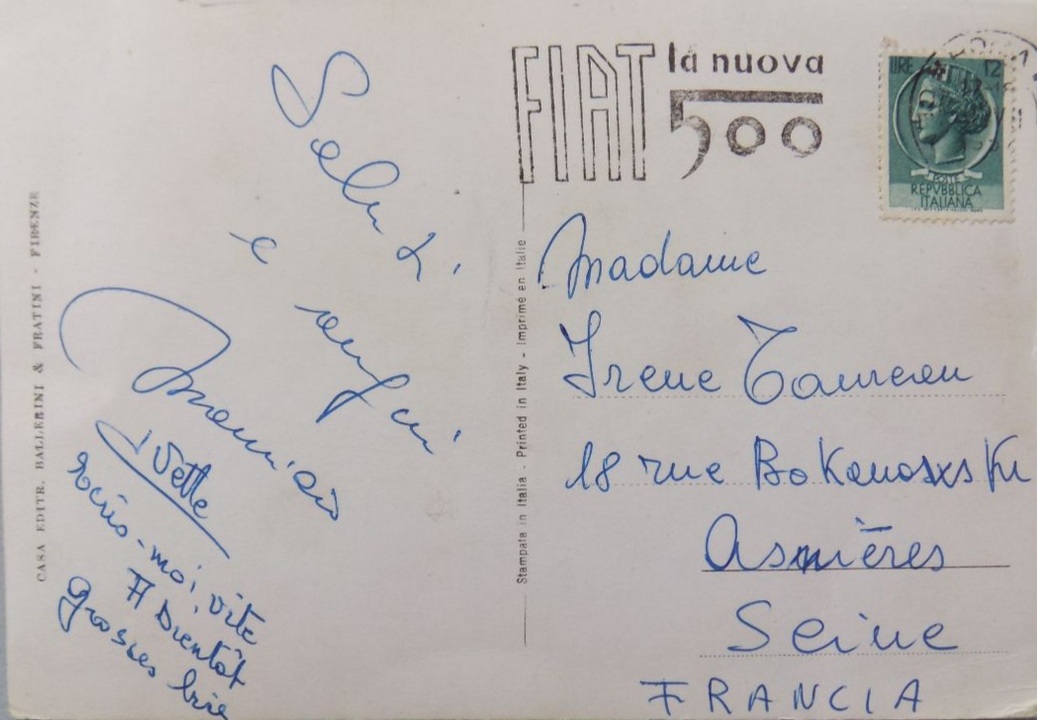 CASA EDITR. BALLERINI & FRATINI - FIRENZE
Saluti
e
Yvette
écris-moi vite
A Bientôt
grosses bise
Stampata in Italia - Printed in Italy - Imprimé en Italie
FIAT la nuova
500
LIRE 12
POSTE
REPVBBLICA
ITALIANA
Madame
Irene Taureau
18 rue Bokanowski
Asnières
Seine
FRANCIA